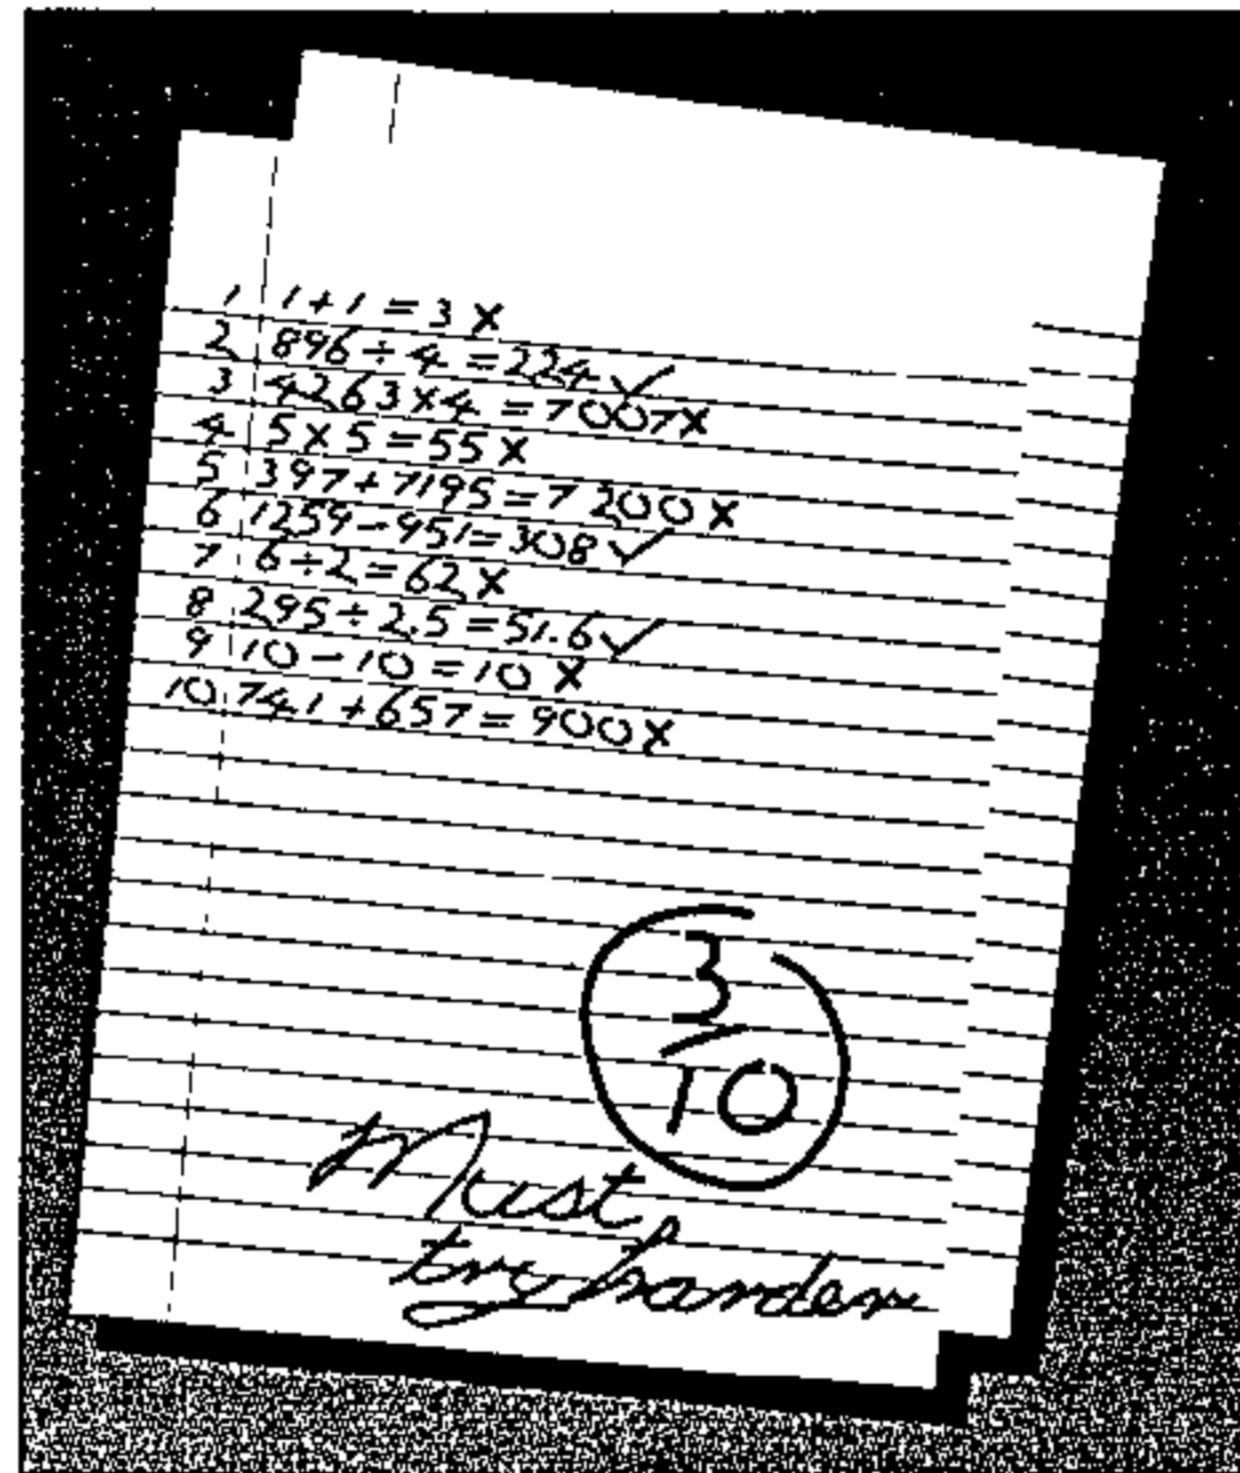 1 1+1=3 X
2 896÷4=224 ✓
3 4263×4=7007 X
4 5×5=55 X
5 397+7195=7200 X
6 1259-951=308 ✓
7 6÷2=62 X
8 295÷2.5=51.6 ✓
9 10-10=10 X
10 741+657=900 X
3/10
Must
try harder